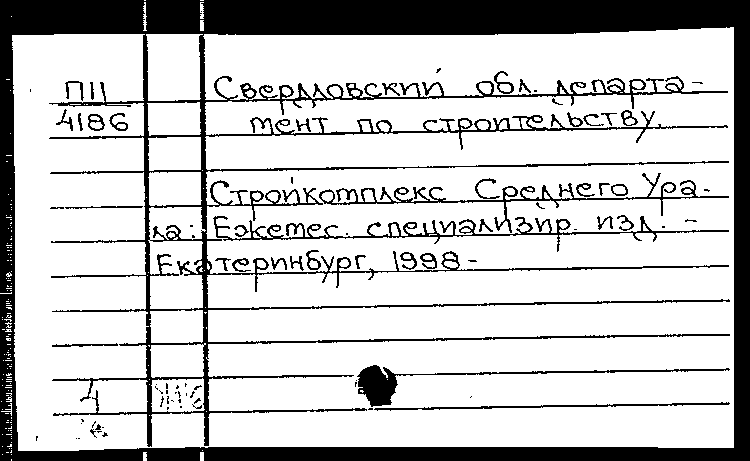 П11
4186
Свердловский обл. департа-
мент по строительству.
Стройкомплекс Среднего Ура-
ла: Ежемес. специализир. изд. -
Екатеринбург, 1998 -
4